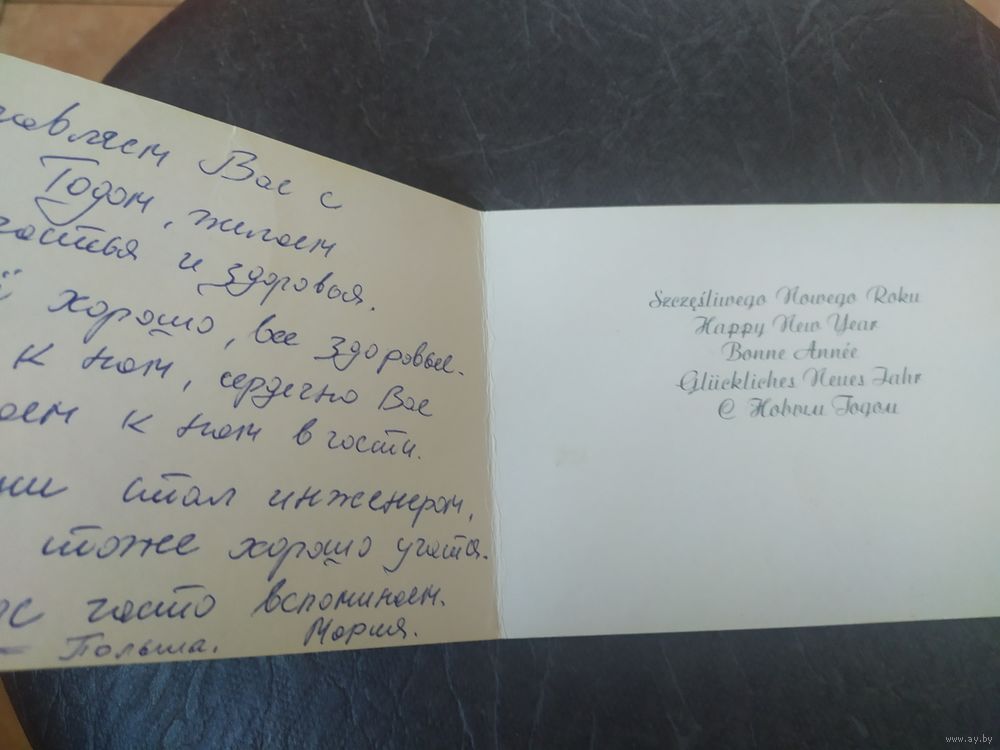 Вас с
Годом, желаем
счастья и здоровья.
хорошо, все здоровые.
к нам, сердечно Вас
к нам в гости.
стал инженером,
тоже хорошо учатся.
часто вспоминаем.
Польша. Мария.
Szczęśliwego Nowego Roku
Happy New Year
Bonne Année
Glückliches Neues Jahr
С Новым Годом
www.ay.by